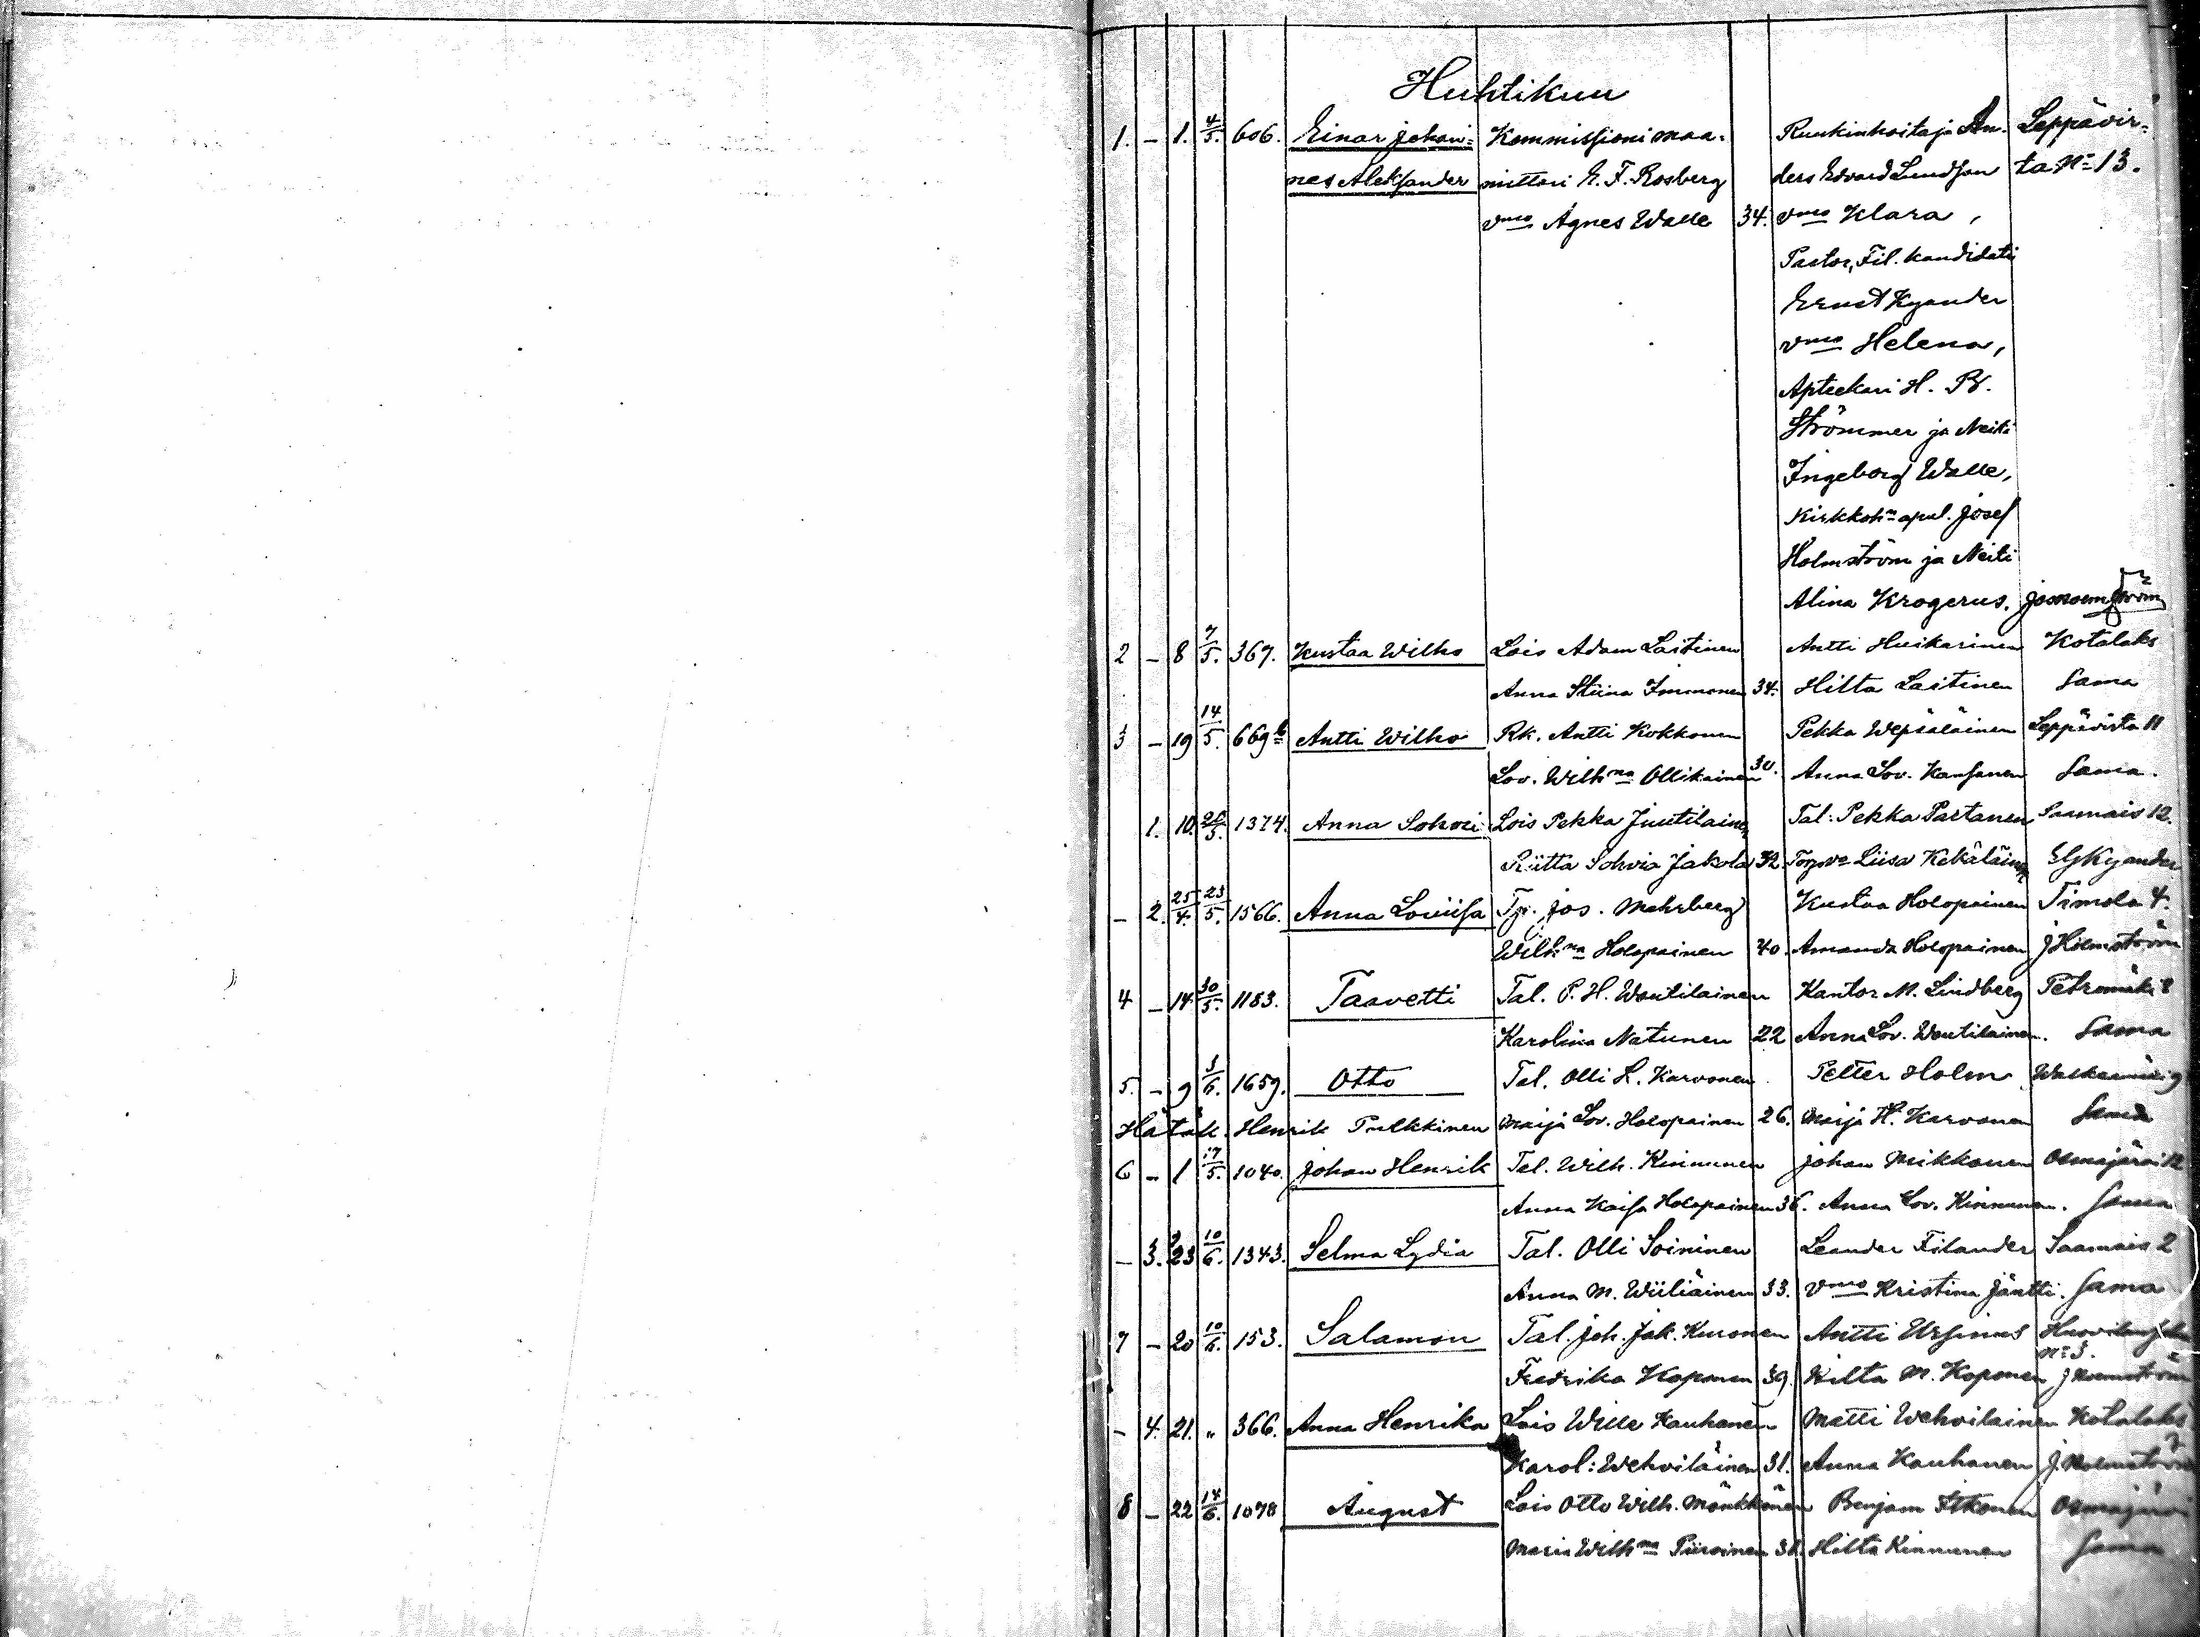 Huhtikuu
1. - 1. 4/5. 606. Einar Johan= Kommissioni maa= Ruukinhoitaja An- Leppävir=
nes Aleksander mittari E. F. Rosberg ders Edvard Lundson ta No 13.
vmo Agnes Walle 34. vmo Klara,
Pastor, Fil. kandidati
Ernst Kyander
vmo Helena,
Apteekari H. W.
Strömmer ja Neiti
Ingeborg Walle,
Kirkkohn apul. Josef
Holmström ja Neiti
Alina Krogerus.
2 - 8 7/5. 367. Kustaa Wilho Lois Adam Laitinen Antti Huikarinen Kotalaks
Anna Stiina Immonen 34. Hilta Laitinen Sama
3 - 19 14/5. 669 b Antti Wilho Rk. Antti Kokkonen Pekka Wepsäläinen Leppävirta 11
Lov. Wilhna Ollikainen 30. Anna Lov. Kansanen Sama.
1. 10. 5. 1374. Anna Sohvi Lois Pekka Juutilainen Tal: Pekka Partanen Saamais 12.
Riitta Sohvia Jakola 32. Liisa Kekäläinen Kyander
- 2. 25/4. 23/5. 1566. Anna Loviisa Jos. Mehrberg Kustaa Holopainen Timola 4.
Wilhna Holopainen 40. Amanda Holopainen J Holmström
4 - 14. 30/5. 1183. Taavetti Tal. P. H. Woutilainen Kantor M. Lindberg Petromäki 8
Karolina Natunen 22 Anna Lov. Woutilainen. Sama
5. - 9 3/6. 1659. Otto Tal. Olli H. Karvonen Petter Holm 9
Hätäk. Henrik Pulkkinen Maija Lov. Holopainen 26. Maija H. Karvonen Sama
6 - 1 17/5. 1040. Johan Henrik Tal. Wilh. Kinnunen Johan Mikkonen Osmajärvi 12
Anna Kaisa Holopainen 36. Anna Lov. Kinnunen. Sama
- 3. 23 10/6. 1343. Selma Lydia Tal. Olli Soininen Leander Filander Saamais 2
Anna M. Wiiliäinen 33. vmo Kristina Jäntti. Sama
7 - 20 10/6. 153. Salamon Tal. Joh. Jak. Kuronen Antti Ursinus
No 3.
Fredrika Koponen 39. Hilta M. Koponen J Holmström
- 4. 21. " 366. Anna Henrika Lois Wille Kauhanen Matti Wehvilainen Kotalaks
Karol: Wehviläinen 31. Anna Kauhanen J. Holmström
8 - 22 14/6. 1078 August Lois Otto Wilh. Mönkkönen Benjam Itkonen Osmajärvi
Maria Wilhna Piiroinen Hilta Kinnunen Sama